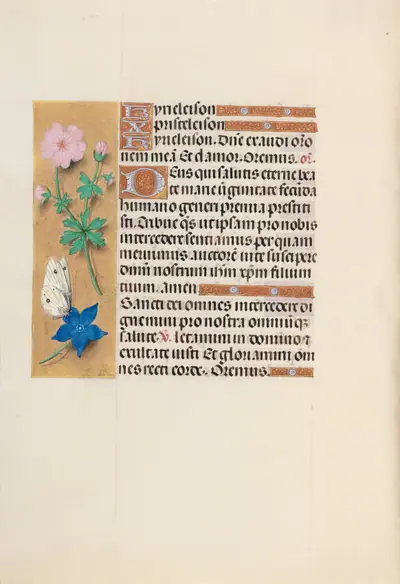 Kyrieleison
Xpristeleison
Kyrieleison. Dñe exaudi orõ
nem meã. Et clamor. Oremus. or̃.
Deus qui salutis eterne bea
te marie ũginitate fecũda
humano generi premia prestiti
sti. Tribue q̃s ut ipsam pro nobis
intercedere sentiamus per quam
meruimus auctorẽ uite suscipe
re dñm nostrum ihm̃ xp̃m filium
tuum. amen
Sancti dei omnes intercedere di
gnemini pro nostra omniũq̃
salute. V. letamini in domino et
exultate iusti Et gloriamini om̃
nes recti corde. Oremus.